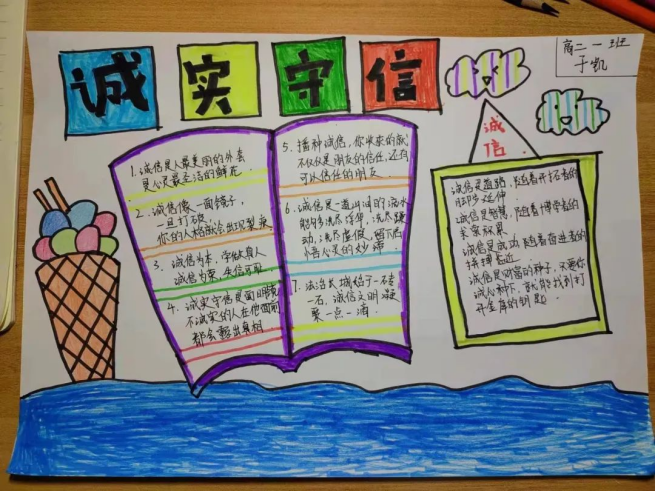 诚实守信
高二一班
于凯
1. 诚信是人最美丽的外套
是心灵最圣洁的鲜花
2. 诚信像一面镜子，
一旦打破，
你的人格就会出现裂痕
3. 诚信为本，学做真人
诚信为荣，失信可耻
4. 诚实守信是面明镜
不诚实的人在他面前
都会露出真相
5. 播种诚信，你收获的就
不仅仅是朋友的信任，还有
可以信任的朋友
6. 诚信是一道山涧的溪水
能够洗尽浮华，洗尽躁
动，洗尽虚假，留下启
悟心灵的妙谛
7. 诚信长城始于一砖
一石，诚信文明凝
聚一点一滴
诚
信
诚信是道路，随着开拓者的
脚步延伸
诚信是智慧，随着博学者的
求索积累
诚信是成功，随着奋进者的
拼搏临近
诚信是财富的种子，只要你
诚心种下，就能找到打
开金库的钥匙